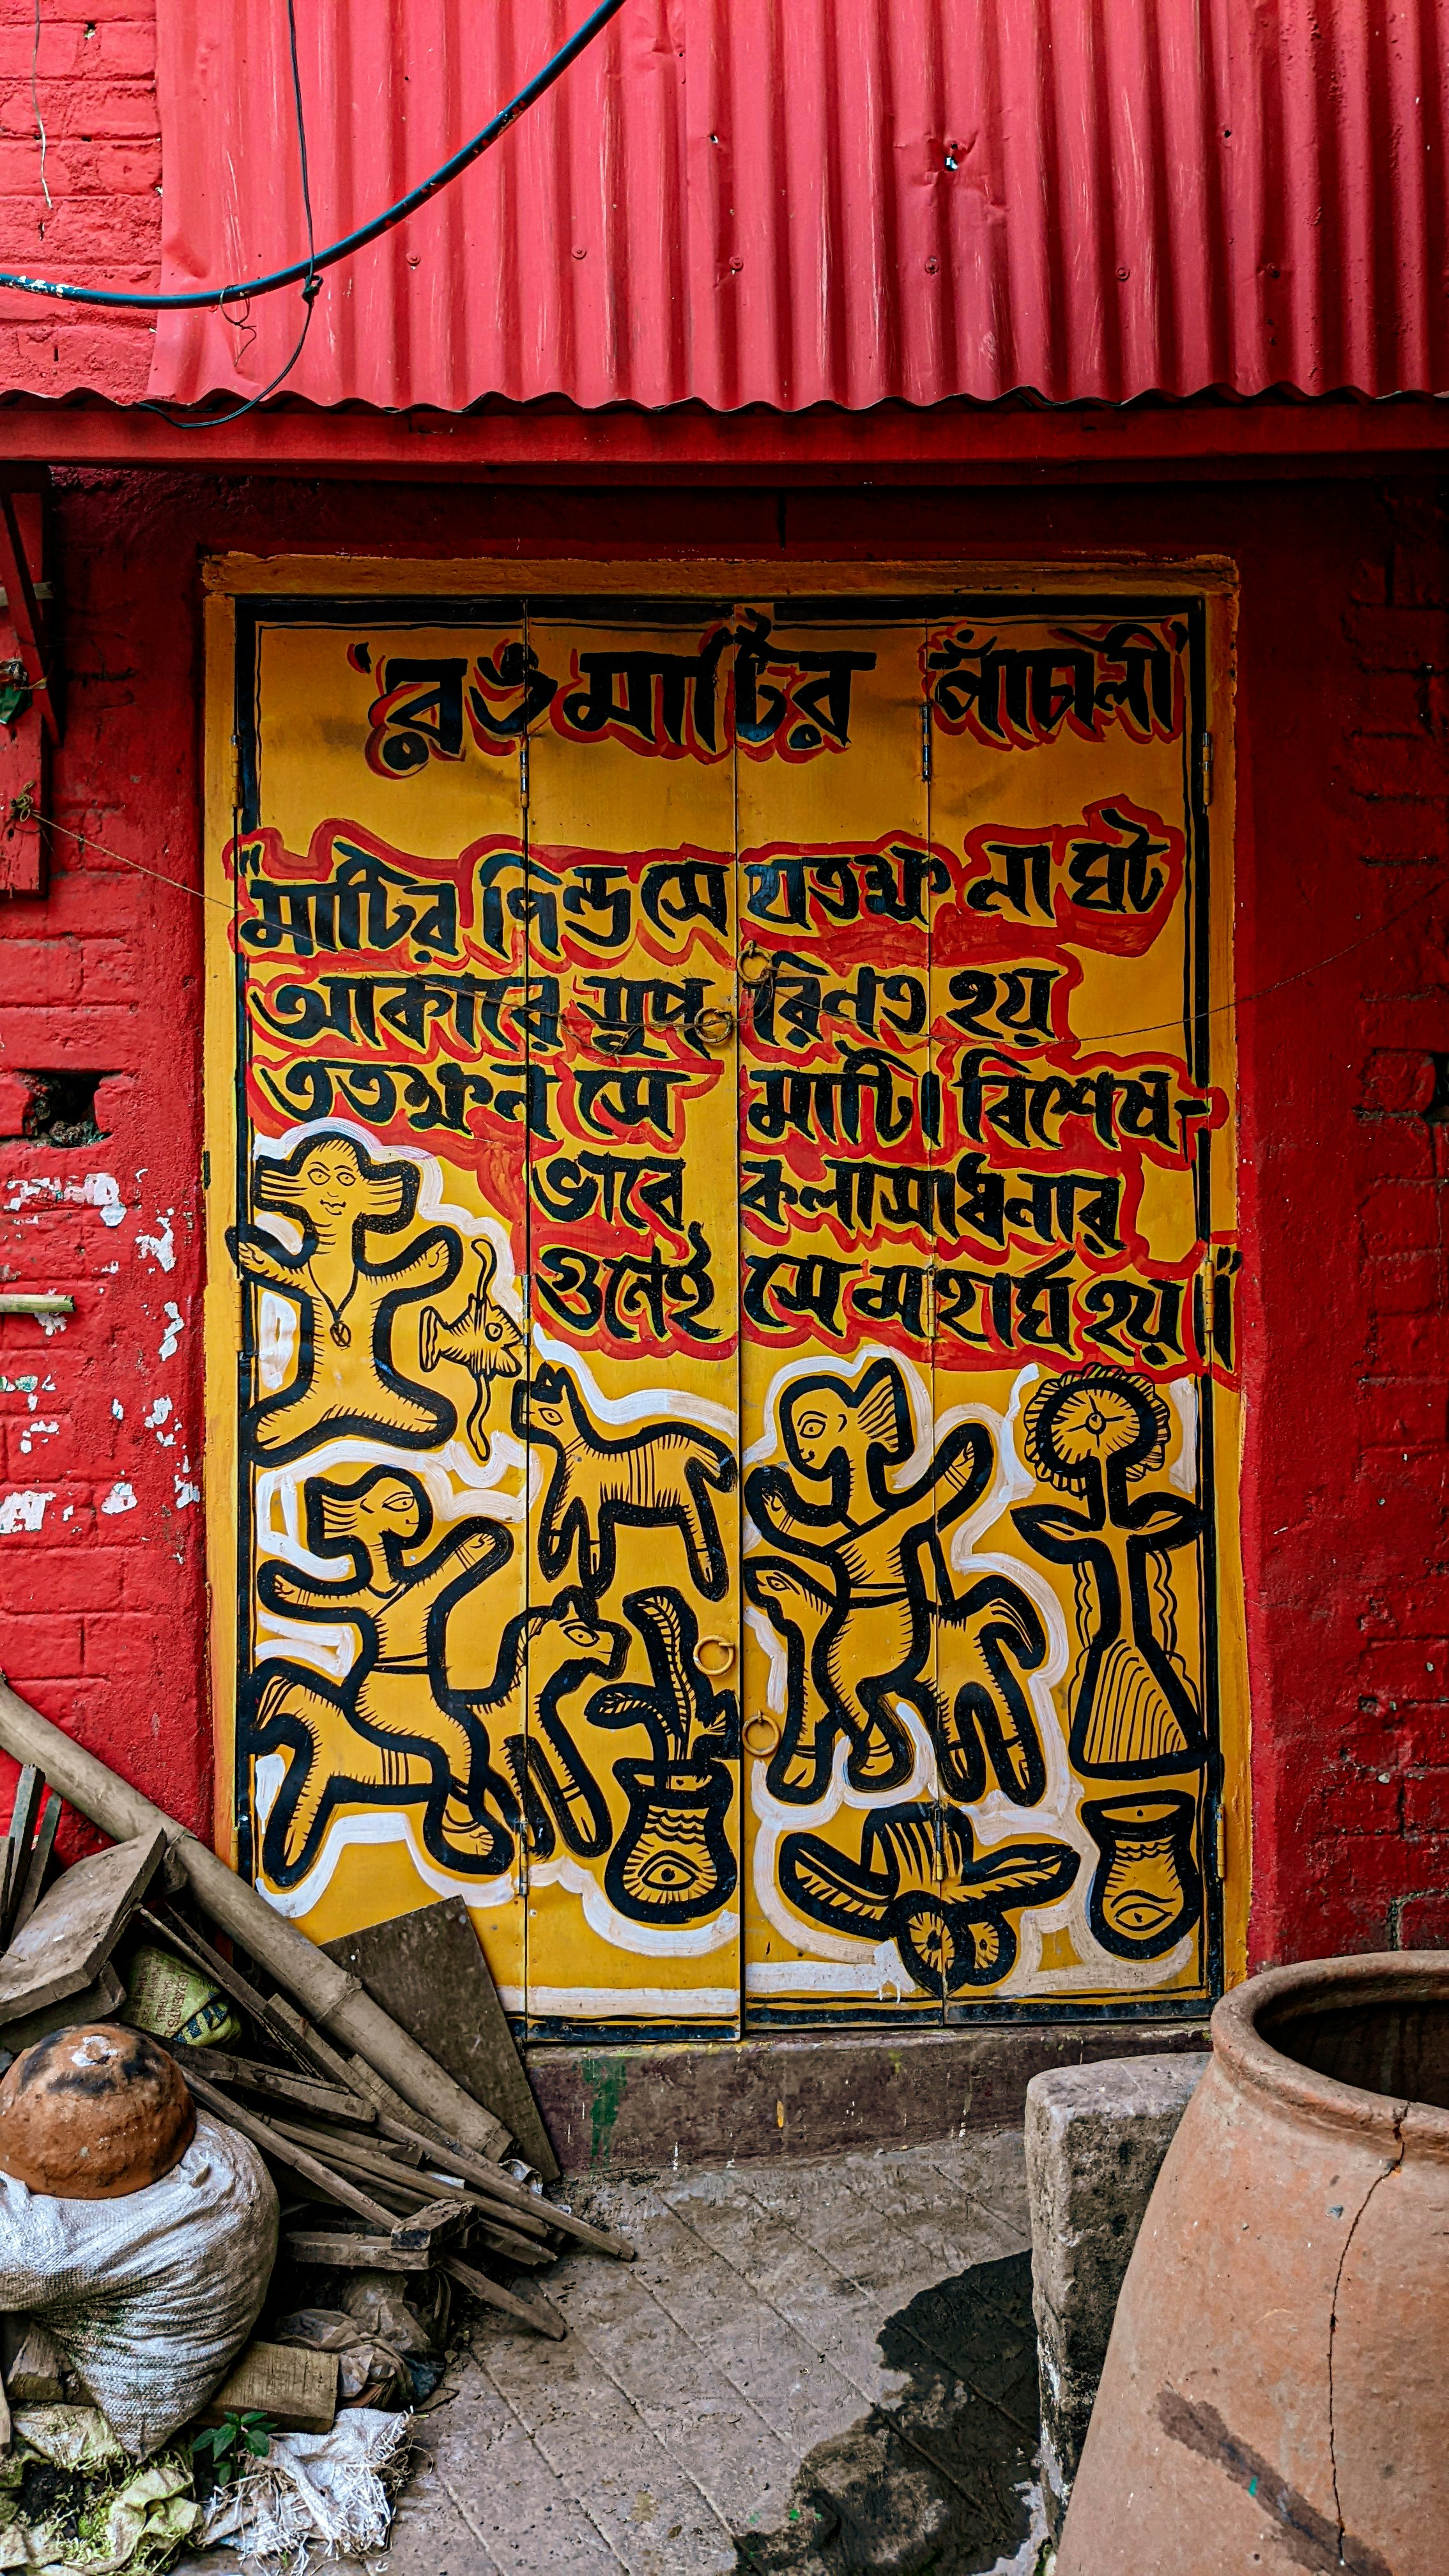 'রঙমাটির পাঁচালী'
"মাটির পিন্ড সে যতক্ষ না ঘট
আকারে সুপরিণত হয়
ততক্ষন সে মাটি। বিশেষ-
ভাবে কলাসাধনার
গুনেই সে মহার্ঘ হয়॥"